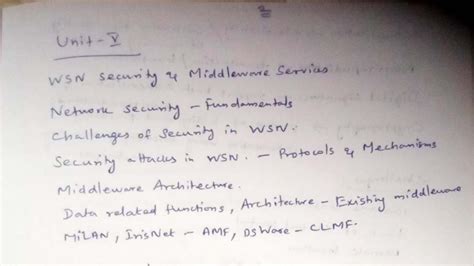 Unit-V
WSN Security & Middleware Services
Network Security - Fundamentals
Challenges of Security in WSN.
Security attacks in WSN. - Protocols & Mechanisms
Middleware Architecture.
Data related functions, Architecture - Existing middleware
MiLAN, IrisNet - AMF, DSWare - CLMF.